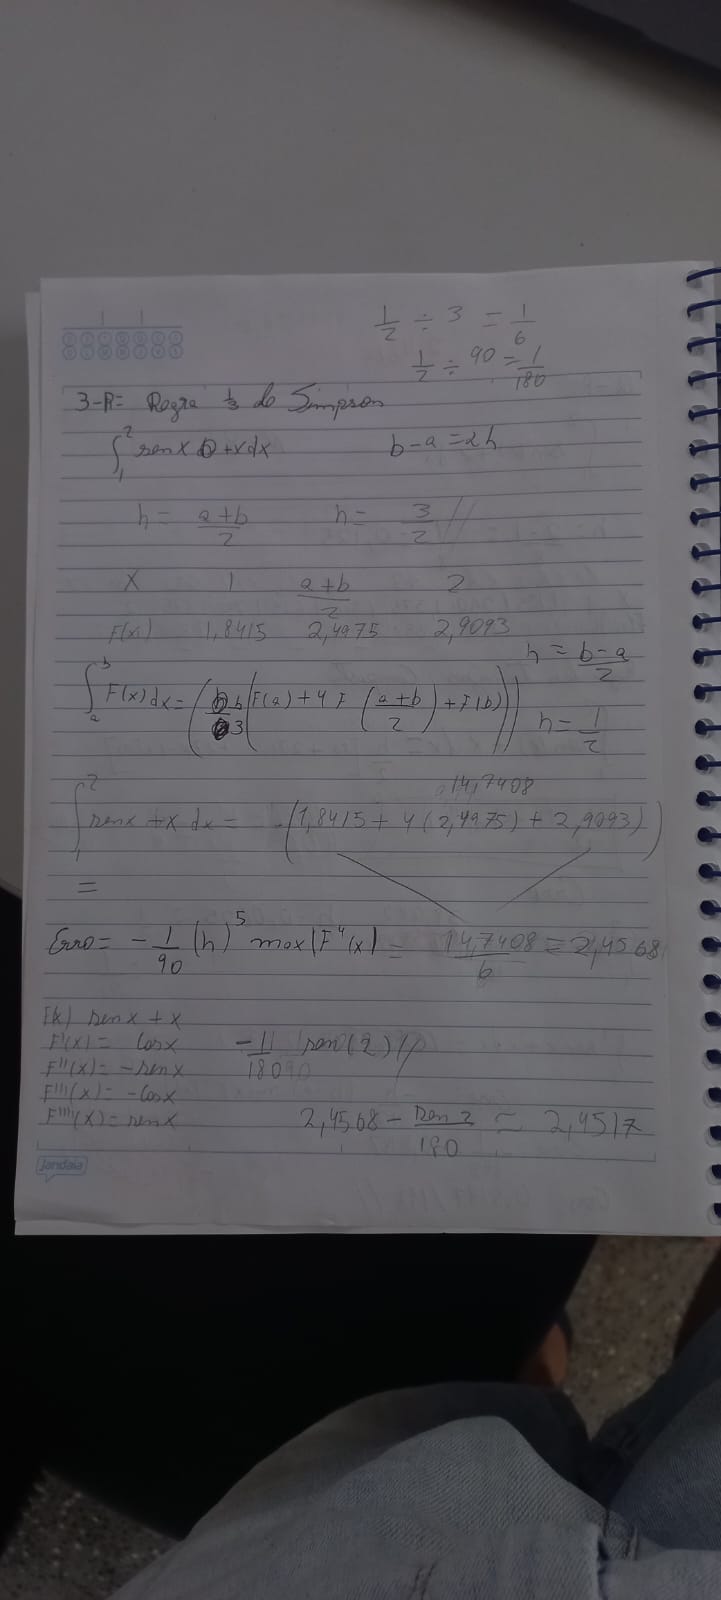 1/2 ÷ 3 = 1/6
1/2 ÷ 90 = 1/180
3-R= Regra 1/3 de Simpson
∫₁² senx +x dx b-a=2h
h = a+b/2 h= 3/2 //
X 1 a+b/2 2
F(x) 1,8415 2,4975 2,9093
h = b-a/2
∫ₐᵇ F(x) dx = (h/3 (F(a) + 4 F (a+b/2) + F(b)))
h = 1/2
14,7408
∫₁² senx +x dx = (1,8415 + 4 (2,4975) + 2,9093)
=
Erro = - 1/90 (h)⁵ max|F⁴(x) = 14,7408/6 = 2,4568
senx + x
F'(x) = cosx sen(2)//
F''(x) = -senx
F'''(x) = -cosx
F''''(x) = senx 2,4568 - sen2/180 = 2,4517
jandaia